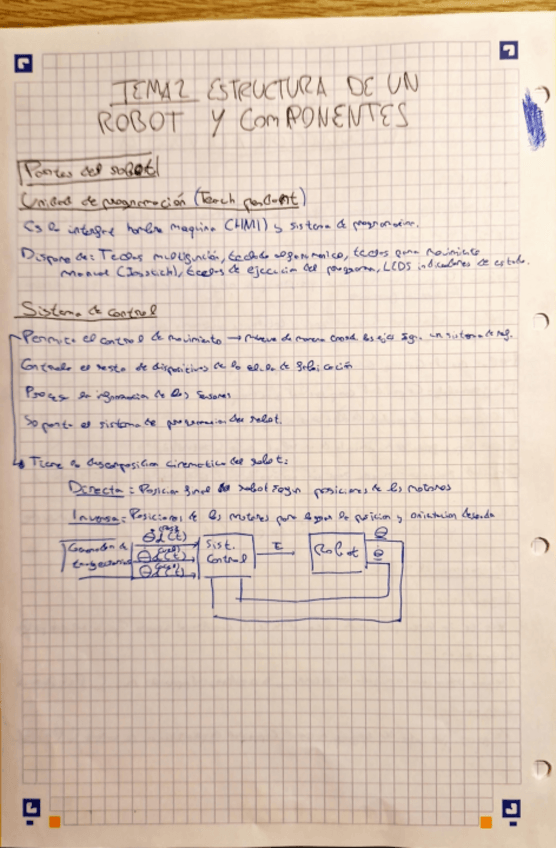 TEMA 2 ESTRUCTURA DE UN
ROBOT Y COMPONENTES
Partes del robot
Unidad de programación (Teach pendant)
Es la interfaz hombre maquina (HMI) y sistema de programación.
Dispone de: Teclas multifunción, teclado alfanumérico, teclas para movimiento
manual (Joystich), teclas de ejecución del programa, LEDS indicadores de estado.
Sistema de control
Permite el control de movimiento → mueve de manera coord. los ejes un sistema de ref.
Controla el resto de dispositivos de la célula de fabricación
Procesa la información de los sensores
Soporta el sistema de programación del robot.
Tiene la descomposición cinemática del robot:
Directa: Posición final robot según posiciones de los motores
Inversa: Posiciones de los motores para lograr la posición y orientación deseada
Generador de
trayectorias
Θd(t)
Θd(t)
Θd(t)
Sist.
Control
τ
Robot
Θ
Θ